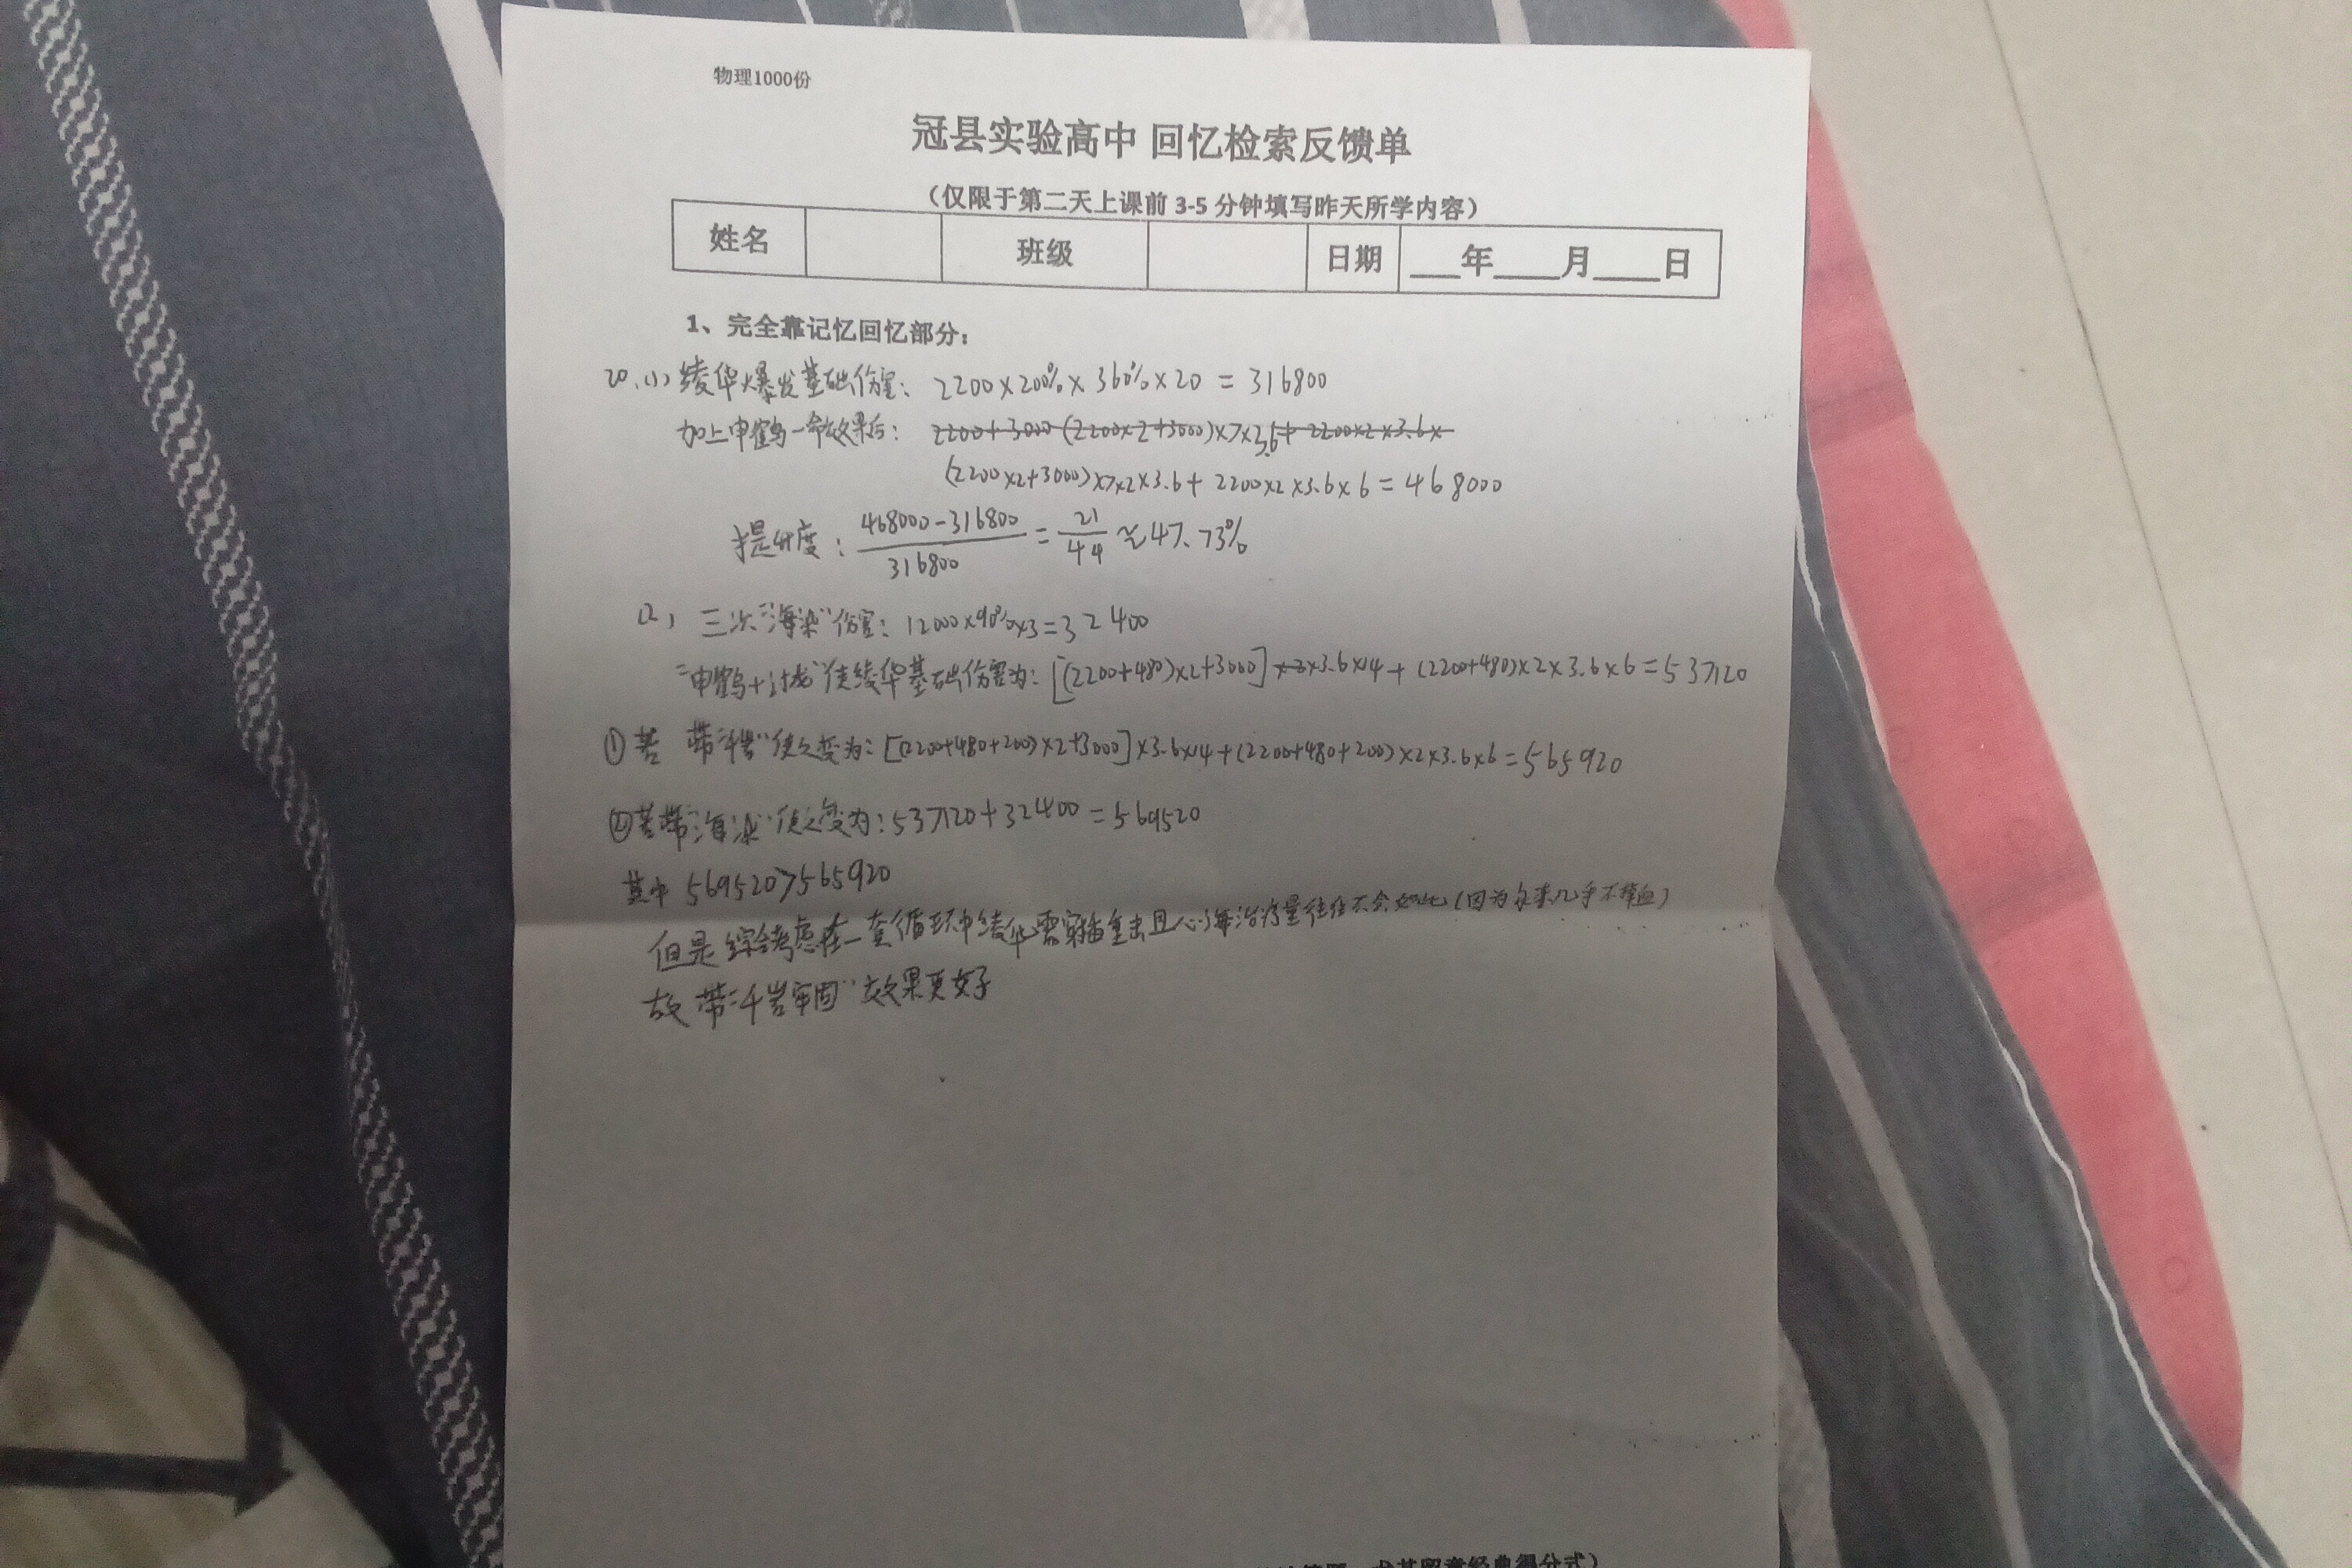 物理1000份
冠县实验高中 回忆检索反馈单
（仅限于第二天上课前 3-5 分钟填写昨天所学内容）
姓名 班级 日期 ___年____月____日
1、完全靠记忆回忆部分：
20.(1) 绫华爆发基础伤害： 2200×200%×360%×20 = 316800
加上申鹤一命效果后： 2200+3000 (2200×2+3000)×7×3.6+ 2200×2×3.6×
(2200×2+3000)×7×2×3.6+ 2200×2×3.6×6 = 468000
提升度： 468000-316800 / 316800 = 21/44 ≈47.73%
(2) 三次“海染”伤害： 12000×90%×3=32400
“申鹤+讨龙”使绫华基础伤害为： [(2200+480)×2+3000] ×2×3.6×14 + (2200+480)×2×3.6×6=537120
①若 带“千岩”使之变为： [(2200+480+200)×2+3000]×3.6×14+(2200+480+200)×2×3.6×6=565920
②若带“海染”使之变为：537120+32400=569520
其中 569520>565920
但是综合考虑在一套循环中绫华需穿插重击且心海治疗量往往不会如此(因为永冻几乎不掉血)
故 带“千岩牢固”效果更好